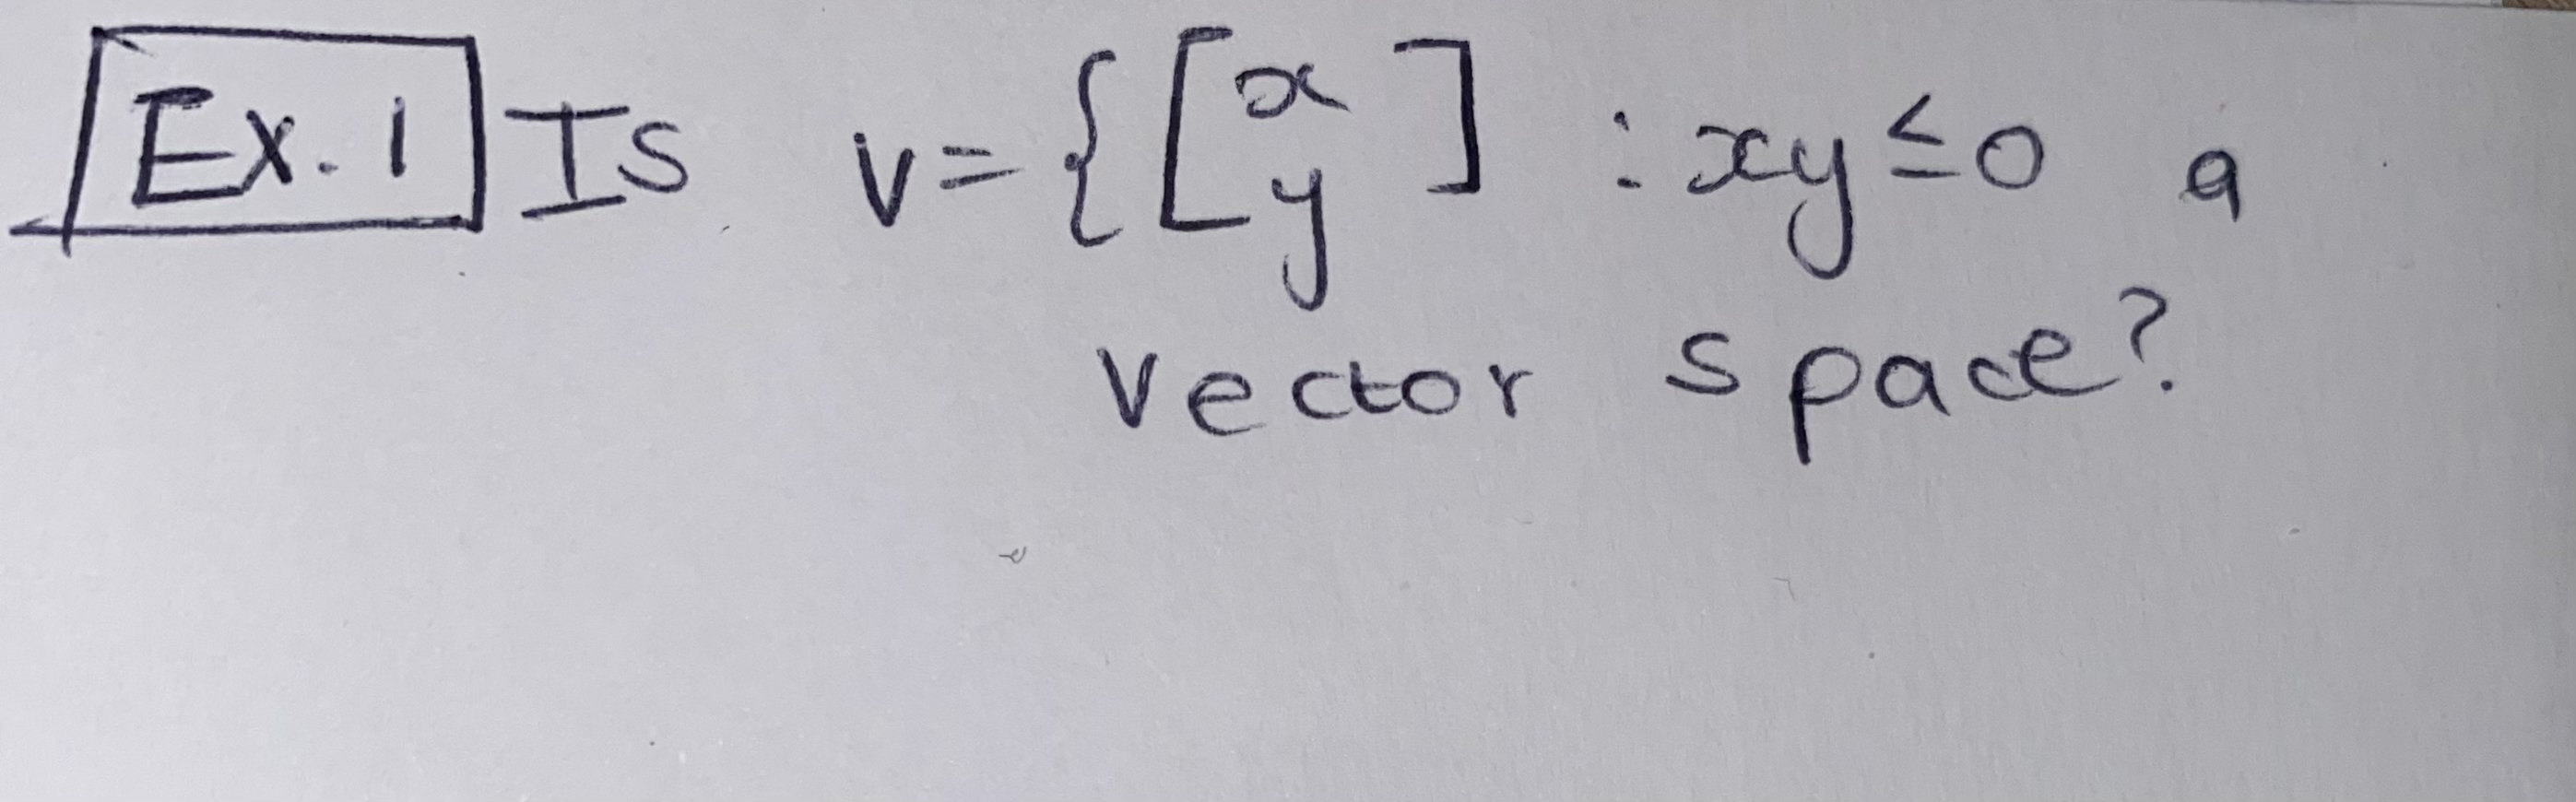 Ex. 1 Is V = { [ x y ] : xy ≤ 0 a
vector space?